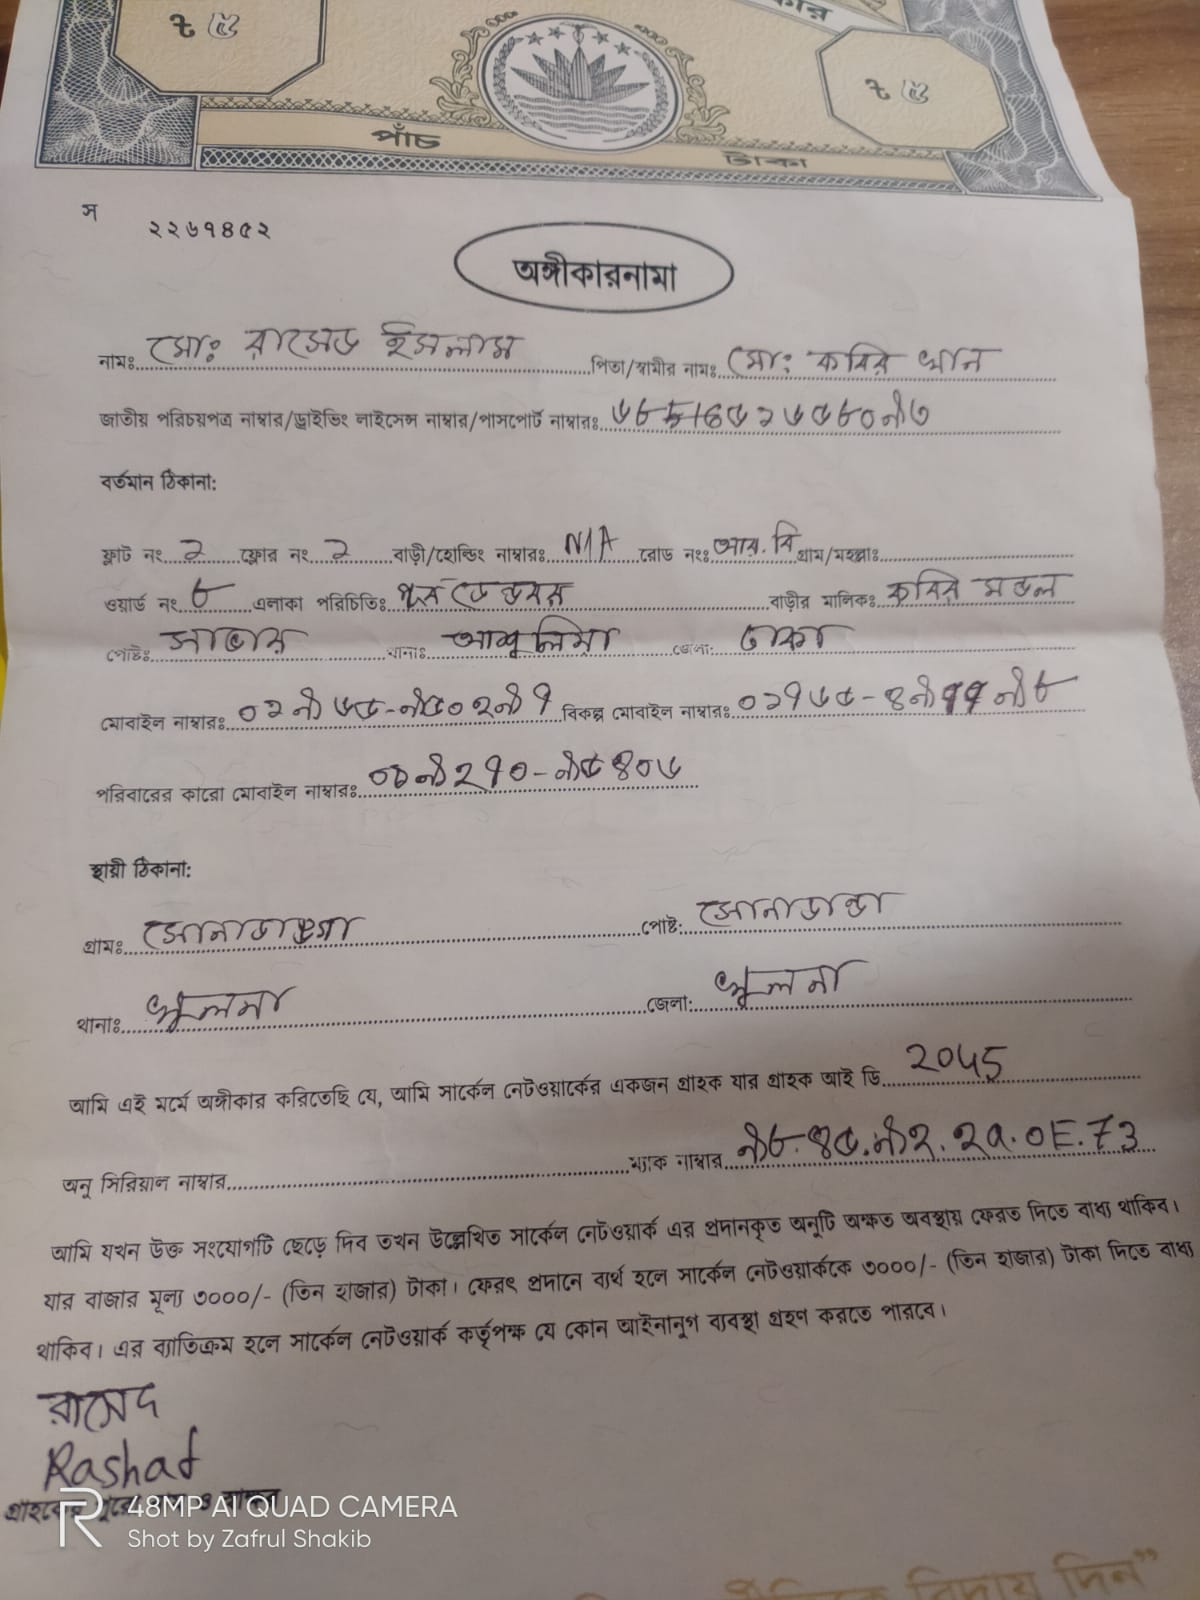 কার
৳ ৫
৳ ৫
পাঁচ টাকা
স
২২৬৭৪৫২
অঙ্গীকারনামা
নামঃ মোঃ রাসেড ইসলাম পিতা/স্বামীর নামঃ মোঃ কবির খান
জাতীয় পরিচয়পত্র নাম্বার/ড্রাইভিং লাইসেন্স নাম্বার/পাসপোর্ট নাম্বারঃ
বর্তমান ঠিকানা:
ফ্লাট নং ২ ফ্লোর নং ২ বাড়ী/হোল্ডিং নাম্বারঃ N/A রোড নংঃ আর. বি গ্রাম/মহল্লাঃ
ওয়ার্ড নং ৮ এলাকা পরিচিতিঃ পূর্ব ডেন্ডাবর বাড়ীর মালিকঃ কবির মন্ডল
পোষ্টঃ সাভার থানাঃ আশুলিয়া জেলা: ঢাকা
মোবাইল নাম্বারঃ বিকল্প মোবাইল নাম্বারঃ
পরিবারের কারো মোবাইল নাম্বারঃ
স্থায়ী ঠিকানা:
গ্রামঃ সোনাডাঙ্গা পোষ্ট: সোনাডাঙ্গা
থানাঃ খুলনা জেলা: খুলনা
আমি এই মর্মে অঙ্গীকার করিতেছি যে, আমি সার্কেল নেটওয়ার্কের একজন গ্রাহক যার গ্রাহক আই ডি 2045
অনু সিরিয়াল নাম্বার ম্যাক নাম্বার ৯৮.৪৫.৯২.2a.0E.73
আমি যখন উক্ত সংযোগটি ছেড়ে দিব তখন উল্লেখিত সার্কেল নেটওয়ার্ক এর প্রদানকৃত অনুটি অক্ষত অবস্থায় ফেরত দিতে বাধ্য থাকিব।
যার বাজার মূল্য ৩০০০/- (তিন হাজার) টাকা। ফেরৎ প্রদানে ব্যর্থ হলে সার্কেল নেটওয়ার্ককে ৩০০০/- (তিন হাজার) টাকা দিতে বাধ্য
থাকিব। এর ব্যাতিক্রম হলে সার্কেল নেটওয়ার্ক কর্তৃপক্ষ যে কোন আইনানুগ ব্যবস্থা গ্রহণ করতে পারবে।
রাসেদ
Rashad
গ্রাহকের
R 48MP AI QUAD CAMERA
Shot by Zafrul Shakib
বিদায় দিন”